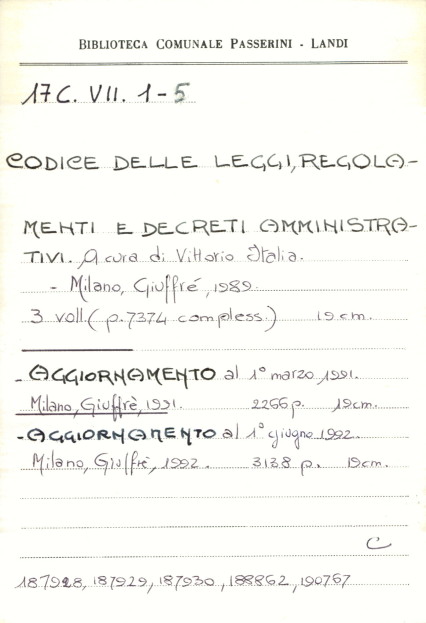 BIBLIOTECA COMUNALE PASSERINI - LANDI
17C. VII. 1-5
CODICE DELLE LEGGI, REGOLA-
MENTI E DECRETI AMMINISTRA-
TIVI. A cura di Vittorio Italia.
- Milano, Giuffré, 1989.
3 voll. (p. 7374 compless.) 19 cm.
- AGGIORNAMENTO al 1° marzo 1991.
Milano, Giuffrè, 1991. 2266 p. 19 cm.
- AGGIORNAMENTO al 1° giugno 1992.
Milano, Giuffrè, 1992. 3138 p. 19 cm.
C
187928, 187929, 187930, 188862, 190767